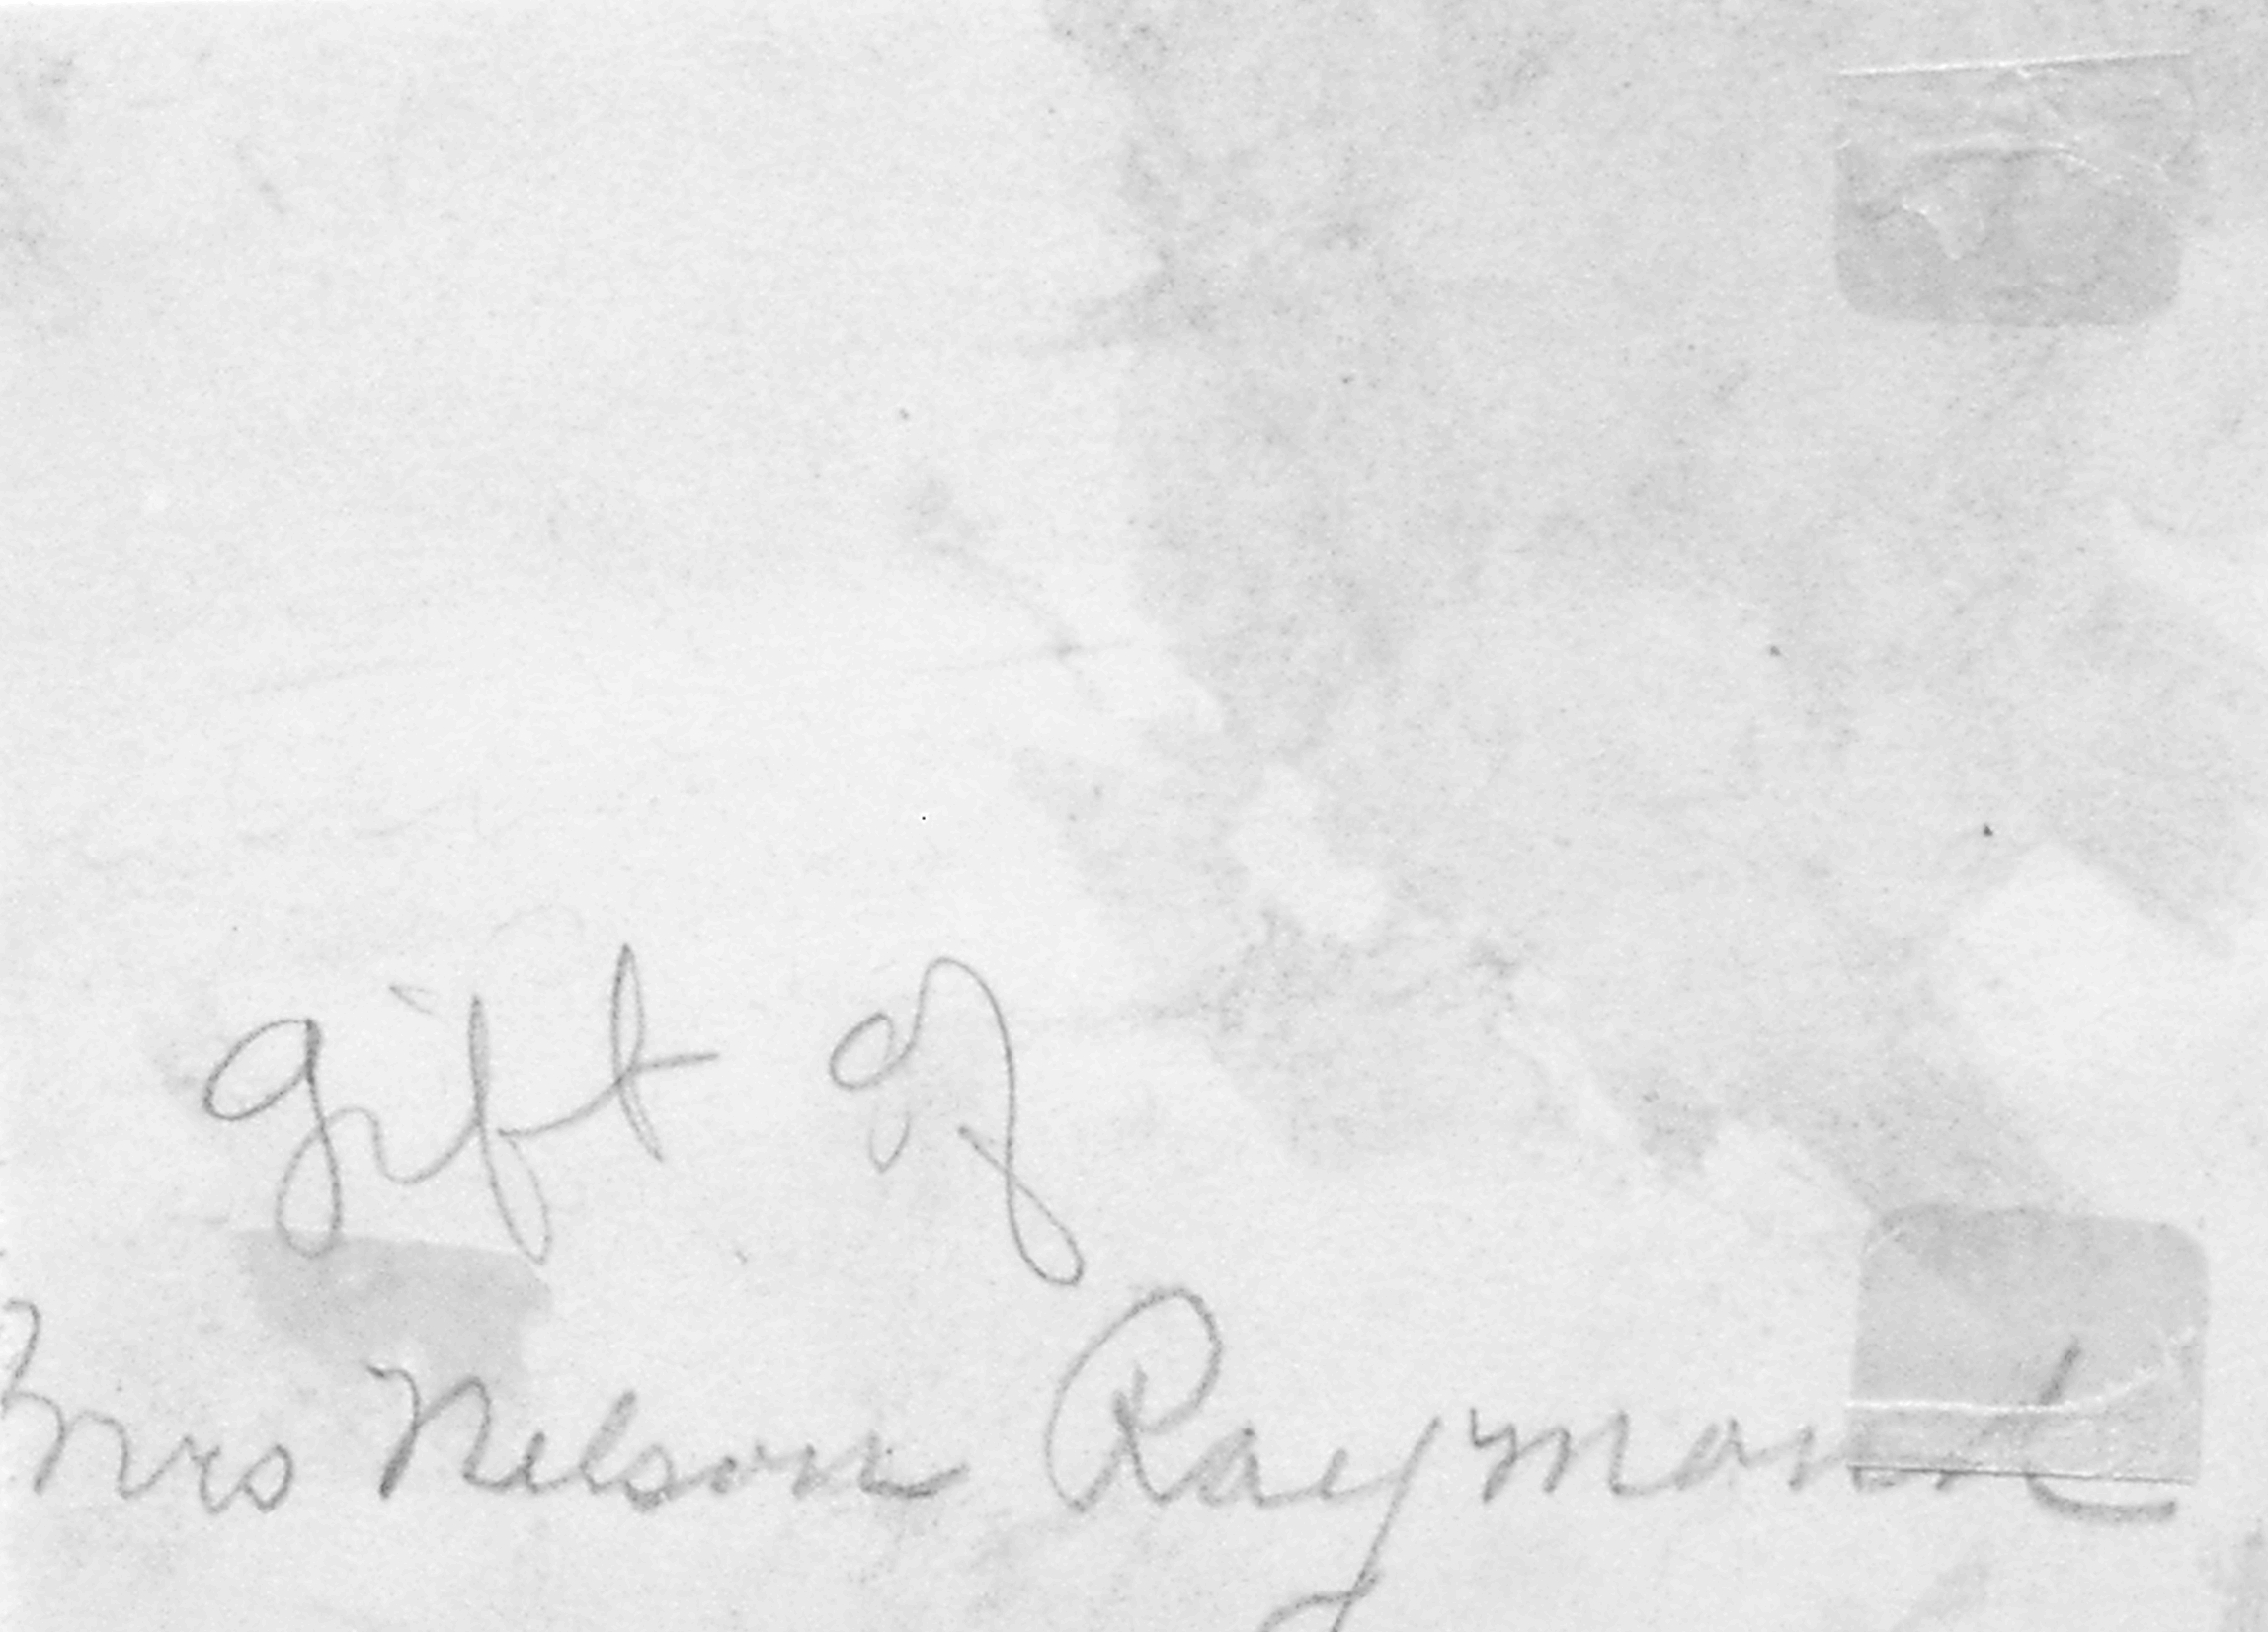 Gift of
Mrs Nelson Raymond